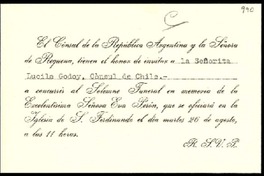 990
El Cónsul de la República Argentina y la Señora
de Requena, tienen el honor de invitar a la Señorita
Lucila Godoy, Cónsul de Chile.-
a concurrir al Solemne Funeral en memoria de la
Excelentísima Señora Eva Perón, que se oficiará en la
Iglesia de S. Ferdinando el día martes 26 de agosto,
a las 11 horas.
R. S. V. P.